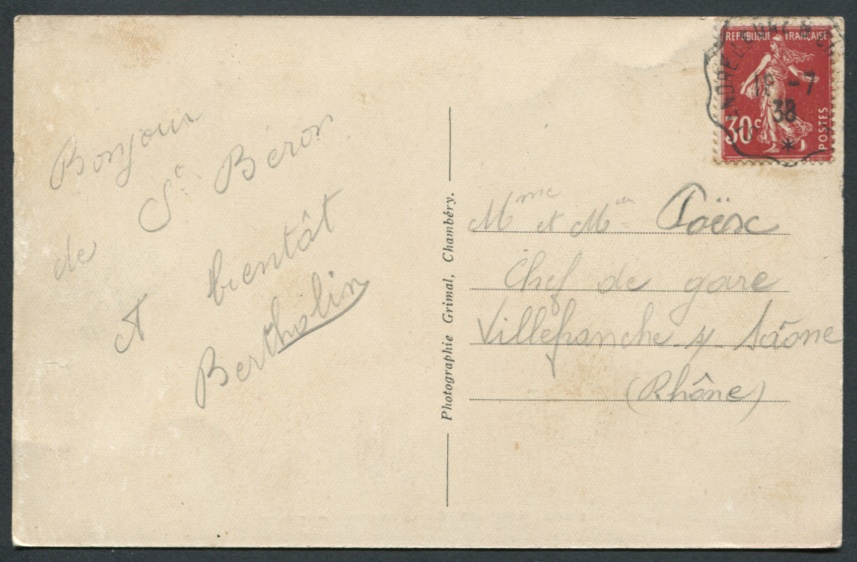 Bonjour
de St Béron
et bientôt
Bertholin
Photographie Grimal, Chambéry.
REPUBLIQUE FRANÇAISE
30c
POSTES
-7
38
*
Mme et Mr
Chef de gare
Villefranche s/ Saône
(Rhône)